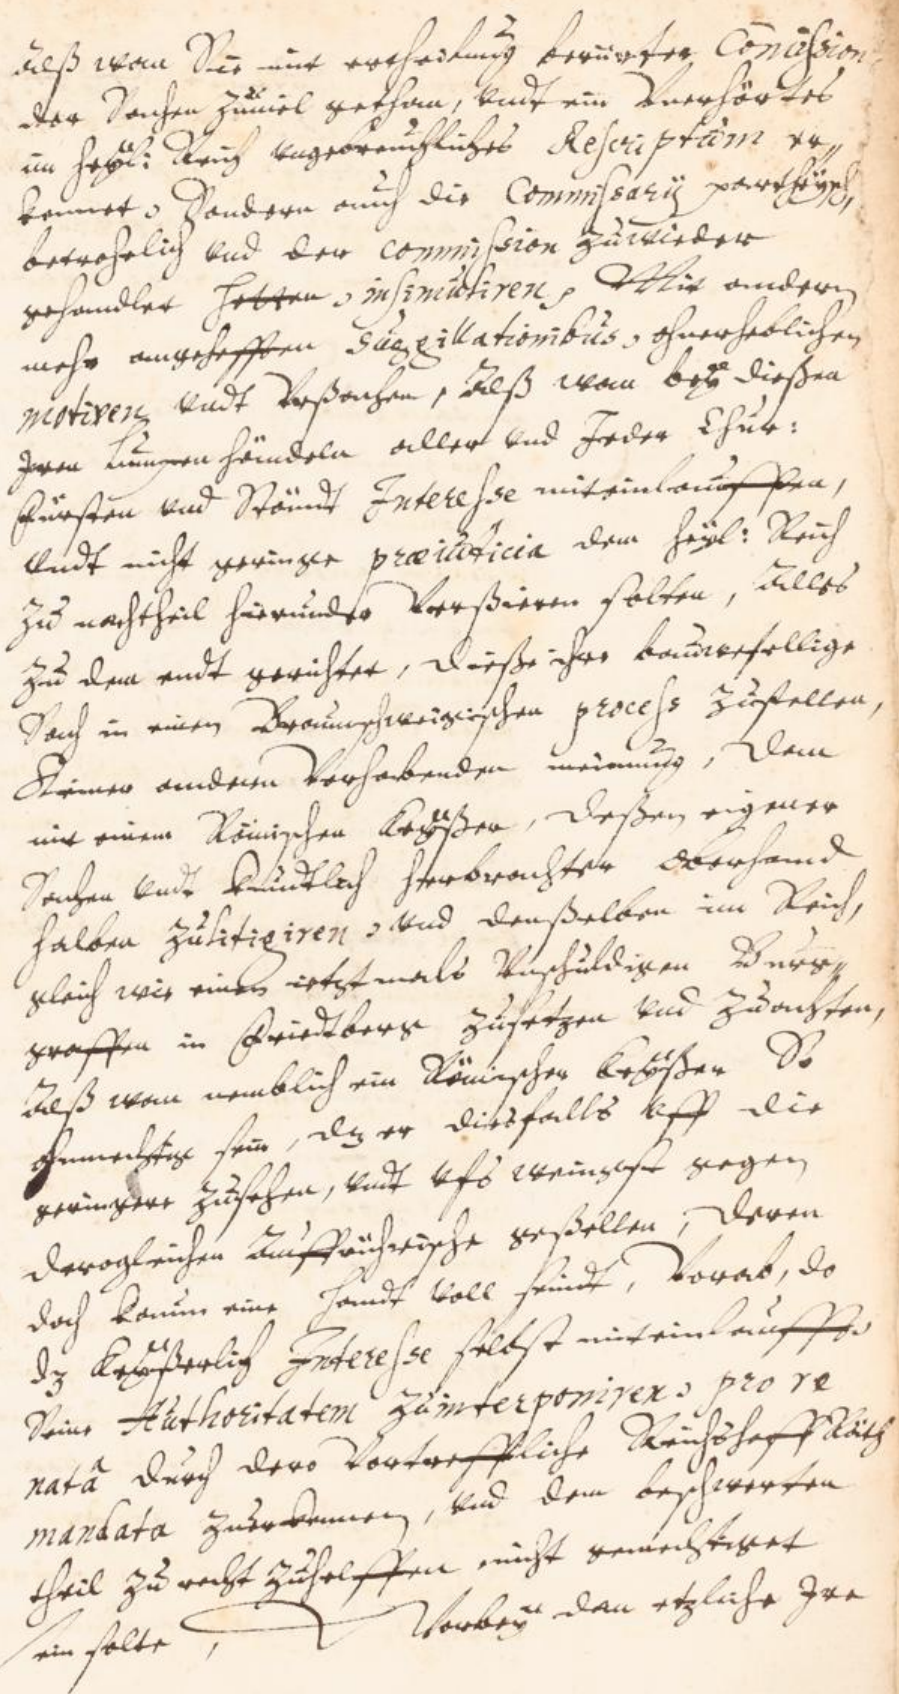 Alß wan Sie mit ertheilung berürter Commission
der Sachen zuuiel gethan, vndt ein Vnerhörtes
im heyl: Reich vngebreuchliches Rescriptum er„
kennet, Sondern auch die Commissarij partheysch,
betrohelich vnd der commission zuwieder
gehandlet hetten, insimuliren, Mit andern
mehr angehefften suggillationibus, ohnerheblichen
motiven vndt Vrßachen, Alß wan bey dießen
Iren händeln aller vnd Jeder Chur:
Fürsten vnd Ständt Interesse miteinlauffen,
vndt nicht geringe præiudicia dem heyl: Reich
zu nachtheil hierunder Verßieren solten, Alles
zu dem endt gerichtet, dieße ihre bauwefellige
Sach in einen Braunschweigischen process zustellen,
Keiner anderen Vorhabenden meinung, dem
mit einem Römischen Keyßer, deßen eigener
Sachen vndt kundtlich herbrachter Oberhand
halben zulitigiren, vnd denßelben im Reich,
gleich wie einen ietzt mals Vnschuldigen Burg„
graffen in Friedtberg zusetzen vnd zuachten,
Alß wan nemblich ein Römischer Keyßer So
ohnmechtig sein, dz er diesfalls vff die
geringere zusehen, vndt vfs wenigst gegen
derogleichen Auffrührische geßellen, deren
doch kaum eine handt voll seindt, Vorab, do
dz Keyßerlich Interesse selbst miteinlauffe,
Seine Authoritatem zuinterponiren, pro re
natâ durch dero Vortreffliche Reichshoff Räth
mandata zuerkennen, vnd dem beschwerten
theil zu recht zuhelffen nicht gemechtiget
sein solte, Vorbey dan etzliche Ire